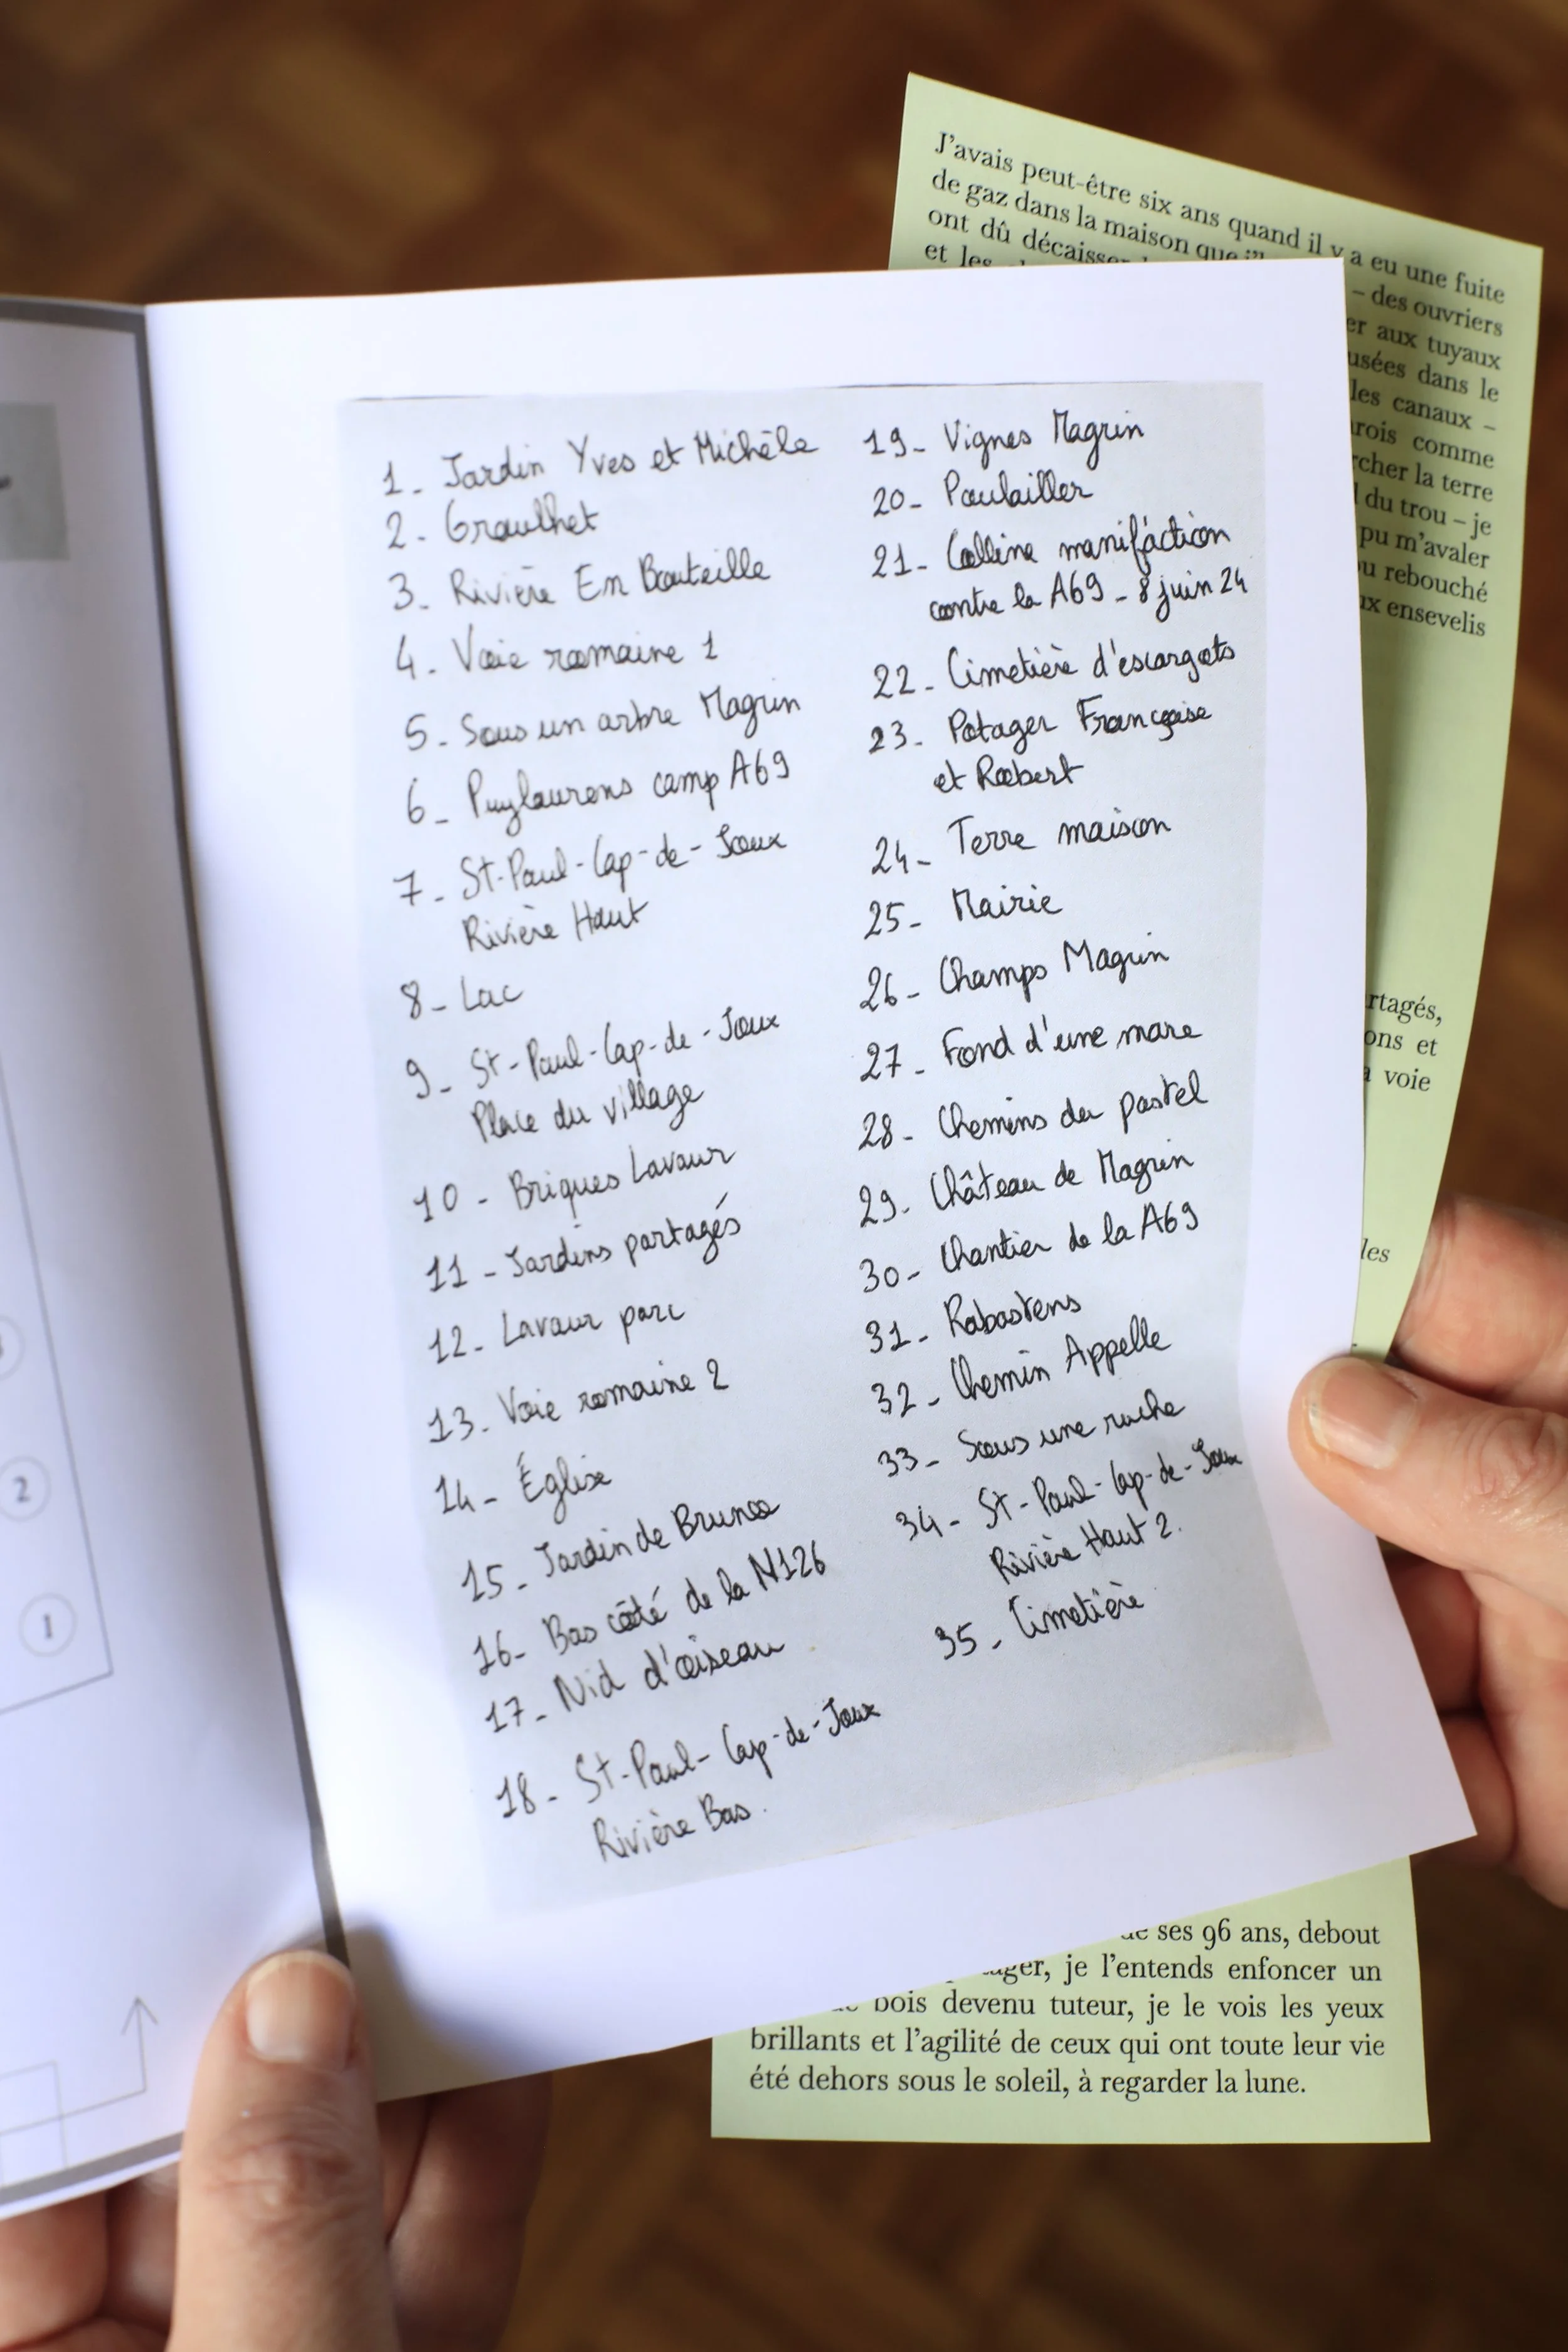 1_ Jardin Yves et Michèle
2_ Graulhet
3_ Rivière En Bouteille
4_ Voie romaine 1
5_ Sous un arbre Magrin
6_ Puylaurens camp A69
7_ St-Paul-Cap-de-Joux
Rivière Haut
8_ Lac
9_ St-Paul-Cap-de-Joux
Place du village
10_ Briques Lavaur
11_ Jardins partagés
12_ Lavaur parc
13_ Voie romaine 2
14_ Église
15_ Jardin de Bruno
16_ Bas côté de la N126
17_ Nid d'oiseau
18_ St-Paul-Cap-de-Joux
Rivière Bas.
19_ Vignes Magrin
20_ Poulailler
21_ Colline manif'action
contre la A69 _ 8 juin 24
22_ Cimetière d'escargots
23_ Potager Françoise
et Robert
24_ Terre maison
25_ Mairie
26_ Champs Magrin
27_ Fond d'une mare
28_ Chemins du pastel
29_ Château de Magrin
30_ Chantier de la A69
31_ Rabastens
32_ Chemin Appelle
33_ Sous une ruche
34_ St-Paul-Cap-de-Joux
Rivière Haut 2.
35_ Cimetière
J'avais peut-être six ans quand il y a eu une fuite
de gaz dans la maison que
– des ouvriers
ont dû décaisser
aux tuyaux
et les
dans le
les canaux –
comme
la terre
du trou – je
pu m'avaler
rebouché
ensevelis
et
voie
les
ses 96 ans, debout
je l'entends enfoncer un
bois devenu tuteur, je le vois les yeux
brillants et l'agilité de ceux qui ont toute leur vie
été dehors sous le soleil, à regarder la lune.
2
1